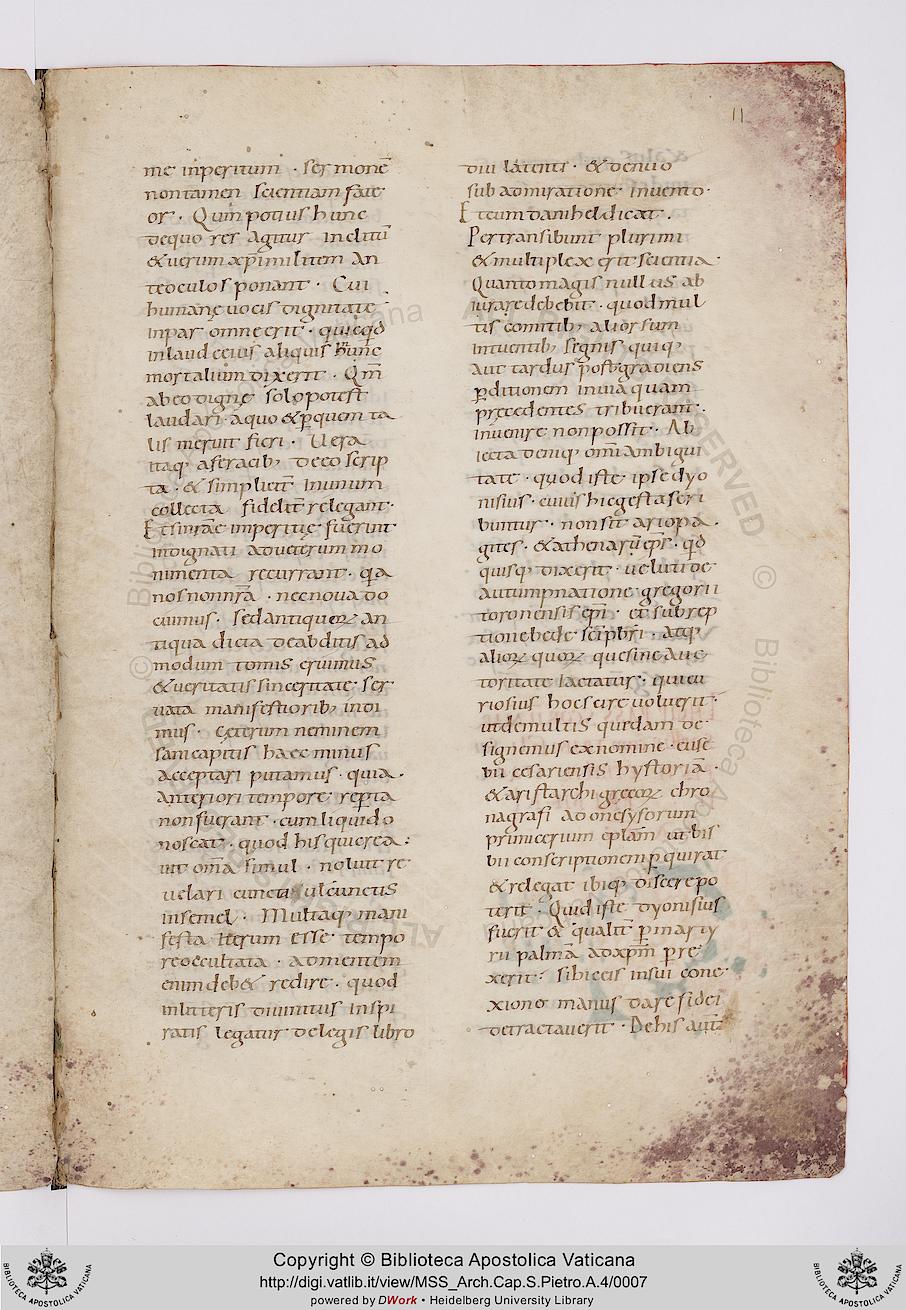 11
me inperitum · sermonē
non tamen scientiam fate
or · Quin potius hunc
de quo res agitur inclitū
& uerum xp̄i militem an
te oculos ponant · Cui
humane uocis dignitate
inpar omne erit · quicq̄d
in laude eius aliquis hunc
mortalium dixerit · Qm̄
ab eo digne solo potest
laudari · a quo & p̱ quem ta
lis meruit fieri · Uera
itaq; a feracib; de eo scrip
ta · & simplicit̄ in unum
collecta fidelit̄ relegant ·
Et si nr̄ae imperitię fuerint
indignati ad ueterum mo
nimenta recurrant · q̄a
nos non nr̄a · nec noua do
cuimus · sed antiquoꝝ an
tiqua dicta de abditis ad
modum tomis eruimus
& ueritatis sinceritate ser
uata manifestiorib; indi
mus · Ceterum neminem
sani capitis haec minus
acceptari putamus · quia ·
anteriori tempore rep̱ta
non fuerant · cum liquido
noscat · quod his qui erea :
uit om̄a simul · noluit re
uelari cuncta ul cunctis
insemel · Multaq; mani
festa iterum esse tempo
re occultata · ad mentem
enim deb& redire · quod
in litteris diuinitus inspi
ratis legatur de legis libro
diu latenti · & denuo
sub admiratione inuento ·
Et cum danihel dicat ·
Pertransibunt plurimi
& multiplex erit scientia ·
Quanto magis nullus ab
iurare debebit · quod mul
tis comitib; aliorsum
intuentib; segnis quiq;
aut tardus post gradiens
p̱ditionem in uia quam
precedentes tribuerant ·
inuenire non possit · Ab
iecta deniq; om̄i ambigui
tate · quod iste ipse dyo
nisius · cuius hic gesta scri
buntur · non sit ariopa ·
gites · & athenarū ep̄s · q̄d
quisq; dixerit · ueluti de
autumpnatione gregorii
toronensis ep̄i · et subrep
tione bede · sc̄i pb̄ri · atq;
alioꝝ quoꝝ que sine auc
toritate iactatur · qui cu
riosius hoc scire uoluerit ·
ut de multis quedam de
signemus ex nomine · euse
bii cesariensis hystoriā ·
& aristarchi grecoꝝ chro
nagrafi ad onesyforum
primicerium ep̄lam ut bis
bii conscriptionem p̱quirat
& relegat ibiq; discere po
terit · Quid iste dyonisius
fuerit & qualit̄ p̱ marty
rii palmā ad xp̄m pre
xerit · sibi eiis in sui cone
xiono manus dare fidei
detractauerit · De his aūt
Copyright © Biblioteca Apostolica Vaticana
http://digi.vatlib.it/view/MSS_Arch.Cap.S.Pietro.A.4/0007
powered by DWork • Heidelberg University Library
BIBLIOTECA APOSTOLICA VATICANA
BIBLIOTECA APOSTOLICA VATICANA